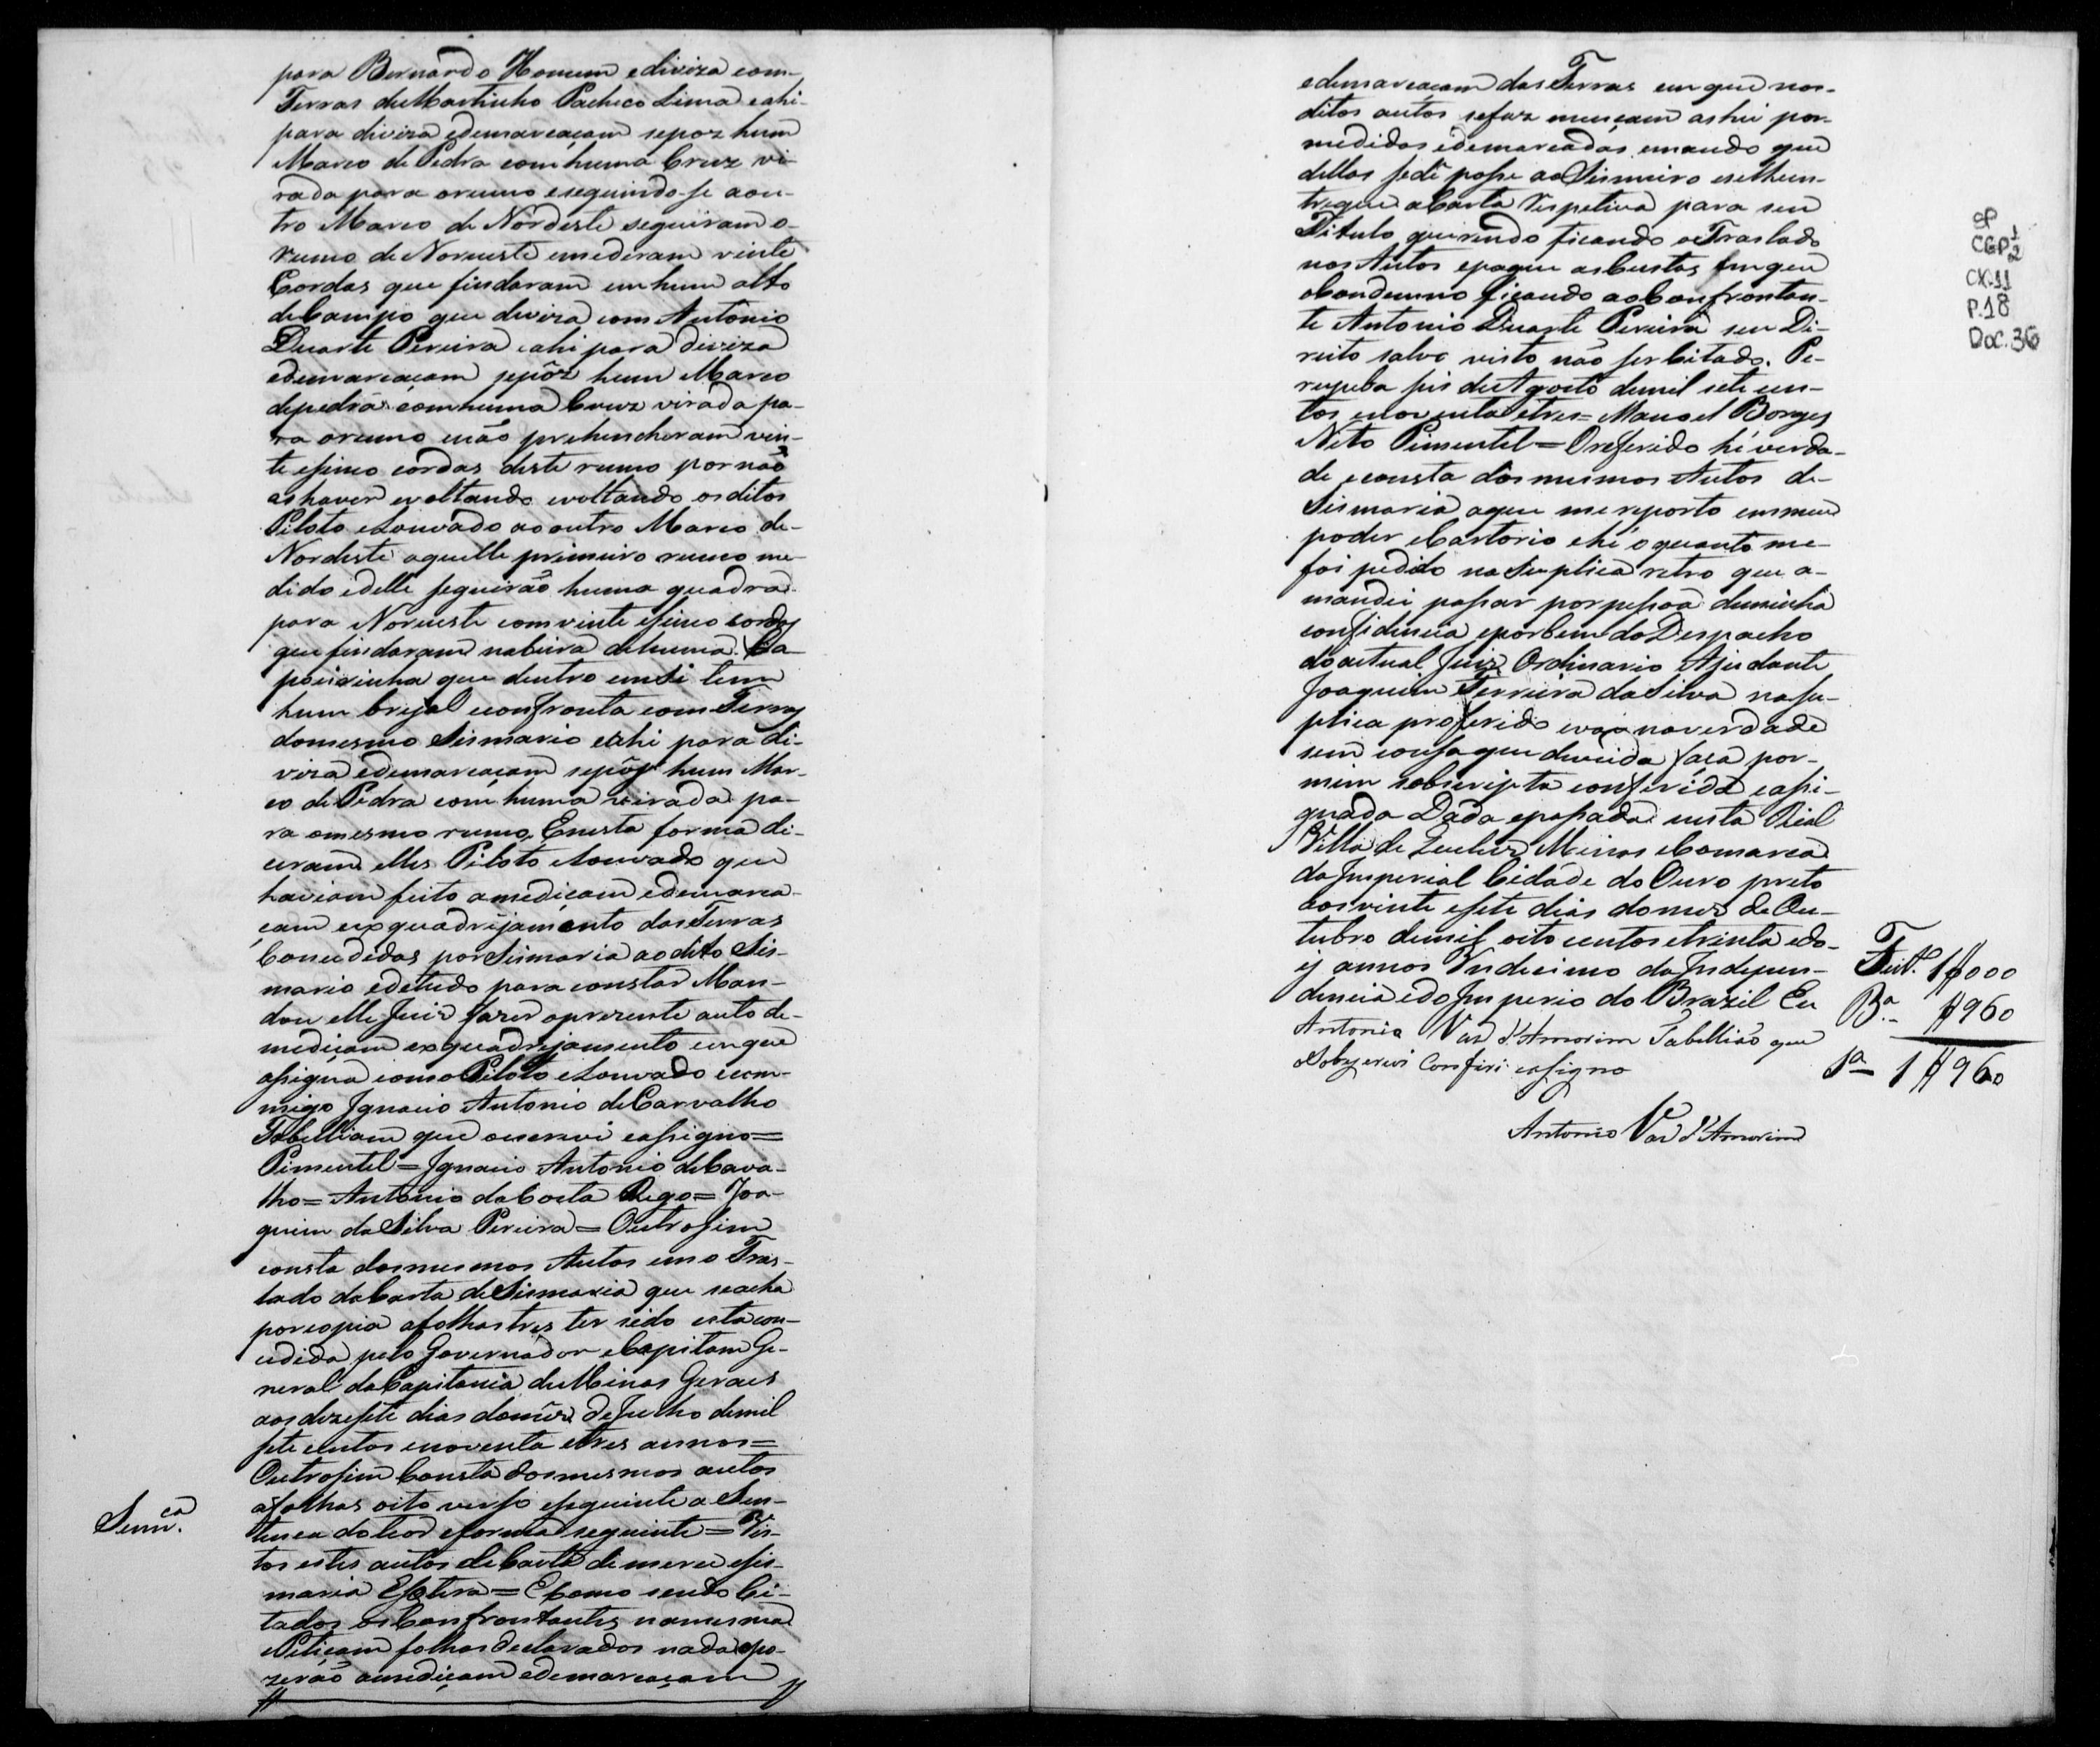 para Bernardo Homem e diviza com
Terras de Martinho Pacheco Lima e ahi
para diviza e demarcaçam se poz hum
Marco de Pedra com huma Cruz vi-
rada para o rumo e seguindo-se a ou-
tro Marco de Nordeste seguiram o
rumo de Noroeste e mederam vinte
Cordas que findaram em hum alto
de Campo que diviza com Antonio
Duarte Pereira e ahi para diviza
e demarcaçam se pôz hum Marco
de pedra com huma Cruz virada pa-
ra o rumo e não prehencheram vin-
te e sinco cordas deste rumo por não
as haver e voltando e voltando os ditos
Piloto e Louvado ao outro Marco de
Nordeste aquelle primeiro rumo me-
dido e delle seguirão huma quadra
para Noroeste com vinte e sinco cordas
que findaram na beira de huma Ca-
poeirinha que dentro em si tem
hum brejal e confronta com Terras
do mesmo Sismario e ahi para di-
viza e demarcaçam se pôz hum Mar-
co de Pedra com huma virada pa-
ra o mesmo rumo, E nesta forma di-
ceram elles Piloto e Louvado que
haviam feito a mediçam e demarca-
çam e exquadrijamento das Terras
Concedidas por Sismaria ao dito Sis-
mario e de tudo para constar Man-
dou elle Juiz fazer o prezente auto de
mediçam e exquadrejamento em que
asigna com o Piloto e Louvado e com-
migo Ignacio Antonio de Carvalho
Tabelliam que o escrevi e assigno =
Pimentel = Ignacio Antonio de Carva-
lho = Antonio da Costa Rego = Joa-
quim da Silva Pereira = Outro sim
consta dos mesmos Autos em o Tras-
lado da Carta de Sismaria que se acha
por copia a folhas tres ter sido esta con-
cedida pelo Governador e Capitam Ge-
neral da Capitania de Minas Geraes
aos dezesete dias do mês de Julho de mil
sete centos e noventa e tres annos =
Outro sim Consta dos mesmos autos
Senn.ca
a folhas oito verso e seguinte a Sen-
tenca do teor e forma seguinte = Vis-
tos estes autos de Carta de merce e sis-
maria Esetera = E como sendo Ci-
tados os Confrontantes na mesma
Petiçam folhas declarados nada opo-
zerão a mediçam e demarcaçam
e demarcaçam das Terras em que nos
ditos autos se faz mençam as hei por
medidas e demarcadas, e mando que
dellas se dê posse ao Sismeiro e se lhe en-
tregue a Carta Respetiva para seu
Titulo querendo ficando o Traslado
nos Autos e pague as Custas em que
o condemno ficando ao Confrontan-
te Antonio Duarte Pereira seu Di-
reito salvo visto não ser Citado. Pe-
reypeba seis de Agosto de mil sete cen-
tos e noventa e tres = Manoel Borges
Neto Pimentel = O referido hé verda-
de e consta dos mesmos Autos de
Sismaria a que me reporto em meu
poder e Cartorio e hé o quanto me
foi pedido na Suplica retro que a
mandei passar por pessoa de minha
confidencia e por bem do Despacho
do actual Juiz Ordinario Ajudante
Joaquim Ferreira da Silva na su-
plica proferido e vai na verdade
sem cousa que duvida faça por
mim sobscripta conferida e asi-
gnada Dada e passada nesta Rial
Villa de Queluz Minas e Comarca
da Imperial Cidade do Ouro preto
aos vinte e sete dias do mes de Ou-
tubro de mil oito centos e trinta e do-
is annos Undecimo da Independ-
dencia e do Imperio do Brazil Eu
Antonio Vaz d'Amorim Tabellião que
o Sobscrevi Conferi e assigno
Antonio Vaz d'Amorim
Feit. 1$000
B.a $960
1$960
CGP 1/2
CX.11
P.18
Doc.36